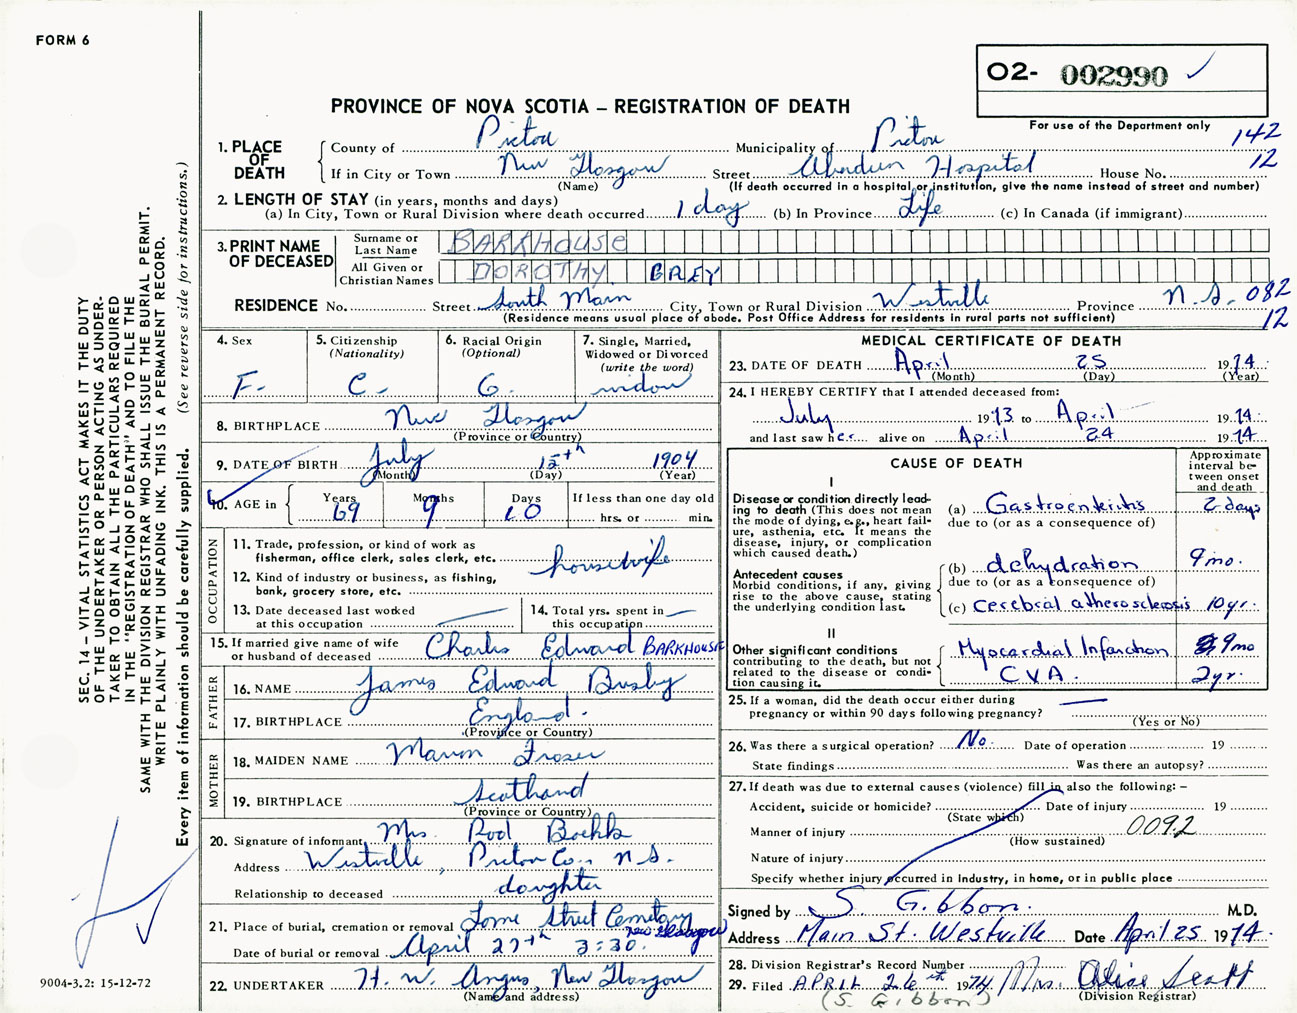 FORM 6
O2- 002990 ✓
PROVINCE OF NOVA SCOTIA – REGISTRATION OF DEATH
For use of the Department only
142
12
1. PLACE OF DEATH
County of Pictou Municipality of Pictou
If in City or Town New Glasgow Street Aberdeen Hospital House No.
(Name) (If death occurred in a hospital or institution, give the name instead of street and number)
2. LENGTH OF STAY (in years, months and days)
(a) In City, Town or Rural Division where death occurred 1 day (b) In Province Life (c) In Canada (if immigrant)
3. PRINT NAME OF DECEASED
Surname or Last Name BARKHOUSE
All Given or Christian Names DOROTHY GREY
RESIDENCE No. Street South Main City, Town or Rural Division Westville Province N.S. 082
(Residence means usual place of abode. Post Office Address for residents in rural parts not sufficient) 12
4. Sex F.
5. Citizenship (Nationality) C.
6. Racial Origin (Optional)
7. Single, Married, Widowed or Divorced (write the word) widow
8. BIRTHPLACE New Glasgow
(Province or Country)
9. DATE OF BIRTH July 15th 1904
(Month) (Day) (Year)
10. AGE in Years 69 Months 9 Days 10 If less than one day old hrs. or min.
OCCUPATION
11. Trade, profession, or kind of work as fisherman, office clerk, sales clerk, etc. housewife
12. Kind of industry or business, as fishing, bank, grocery store, etc.
13. Date deceased last worked at this occupation
14. Total yrs. spent in this occupation
15. If married give name of wife or husband of deceased Charles Edward BARKHOUSE
FATHER
16. NAME James Edward Busby
17. BIRTHPLACE England.
(Province or Country)
MOTHER
18. MAIDEN NAME Marion Fraser
19. BIRTHPLACE Scotland
(Province or Country)
20. Signature of informant Mrs. Rod
Address Westville, Pictou Co. N.S.
Relationship to deceased daughter
21. Place of burial, cremation or removal Lorne Street Cemetary New Glasgow
Date of burial or removal April 27th 3:30.
22. UNDERTAKER H. W. Angus, New Glasgow
(Name and address)
MEDICAL CERTIFICATE OF DEATH
23. DATE OF DEATH April 25 1974
(Month) (Day) (Year)
24. I HEREBY CERTIFY that I attended deceased from:
July 1973 to April 1974.
and last saw her alive on April 24 1974
CAUSE OF DEATH
Approximate interval between onset and death
I
Disease or condition directly leading to death (This does not mean the mode of dying, e.g., heart failure, asthenia, etc. It means the disease, injury, or complication which caused death.)
(a) Gastroenteritis 2 days
due to (or as a consequence of)
Antecedent causes
Morbid conditions, if any, giving rise to the above cause, stating the underlying condition last.
(b) dehydration 9 mo.
due to (or as a consequence of)
(c) Cerebral atherosclerosis 10 yr.
II
Other significant conditions contributing to the death, but not related to the disease or condition causing it.
Myocardial Infarction 9 mo
CVA. 2 yr.
25. If a woman, did the death occur either during pregnancy or within 90 days following pregnancy?
(Yes or No)
26. Was there a surgical operation? No. Date of operation 19
State findings Was there an autopsy?
27. If death was due to external causes (violence) fill in also the following: –
Accident, suicide or homicide? Date of injury 19
(State which)
Manner of injury 0092
(How sustained)
Nature of injury
Specify whether injury occurred in Industry, in home, or in public place
Signed by S. Gibbon. M.D.
Address Main St. Westville Date April 25 1974.
28. Division Registrar's Record Number
29. Filed APRIL 26th 1974 Mrs. Alice Scott
(S. Gibbon) (Division Registrar)
SEC. 14 – VITAL STATISTICS ACT MAKES IT THE DUTY
OF THE UNDERTAKER OR PERSON ACTING AS UNDER-
TAKER TO OBTAIN ALL THE PARTICULARS REQUIRED
IN THE "REGISTRATION OF DEATH" AND TO FILE THE
SAME WITH THE DIVISION REGISTRAR WHO SHALL ISSUE THE BURIAL PERMIT.
WRITE PLAINLY WITH UNFADING INK. THIS IS A PERMANENT RECORD.
Every item of information should be carefully supplied. (See reverse side for instructions.)
9004-3.2: 15-12-72